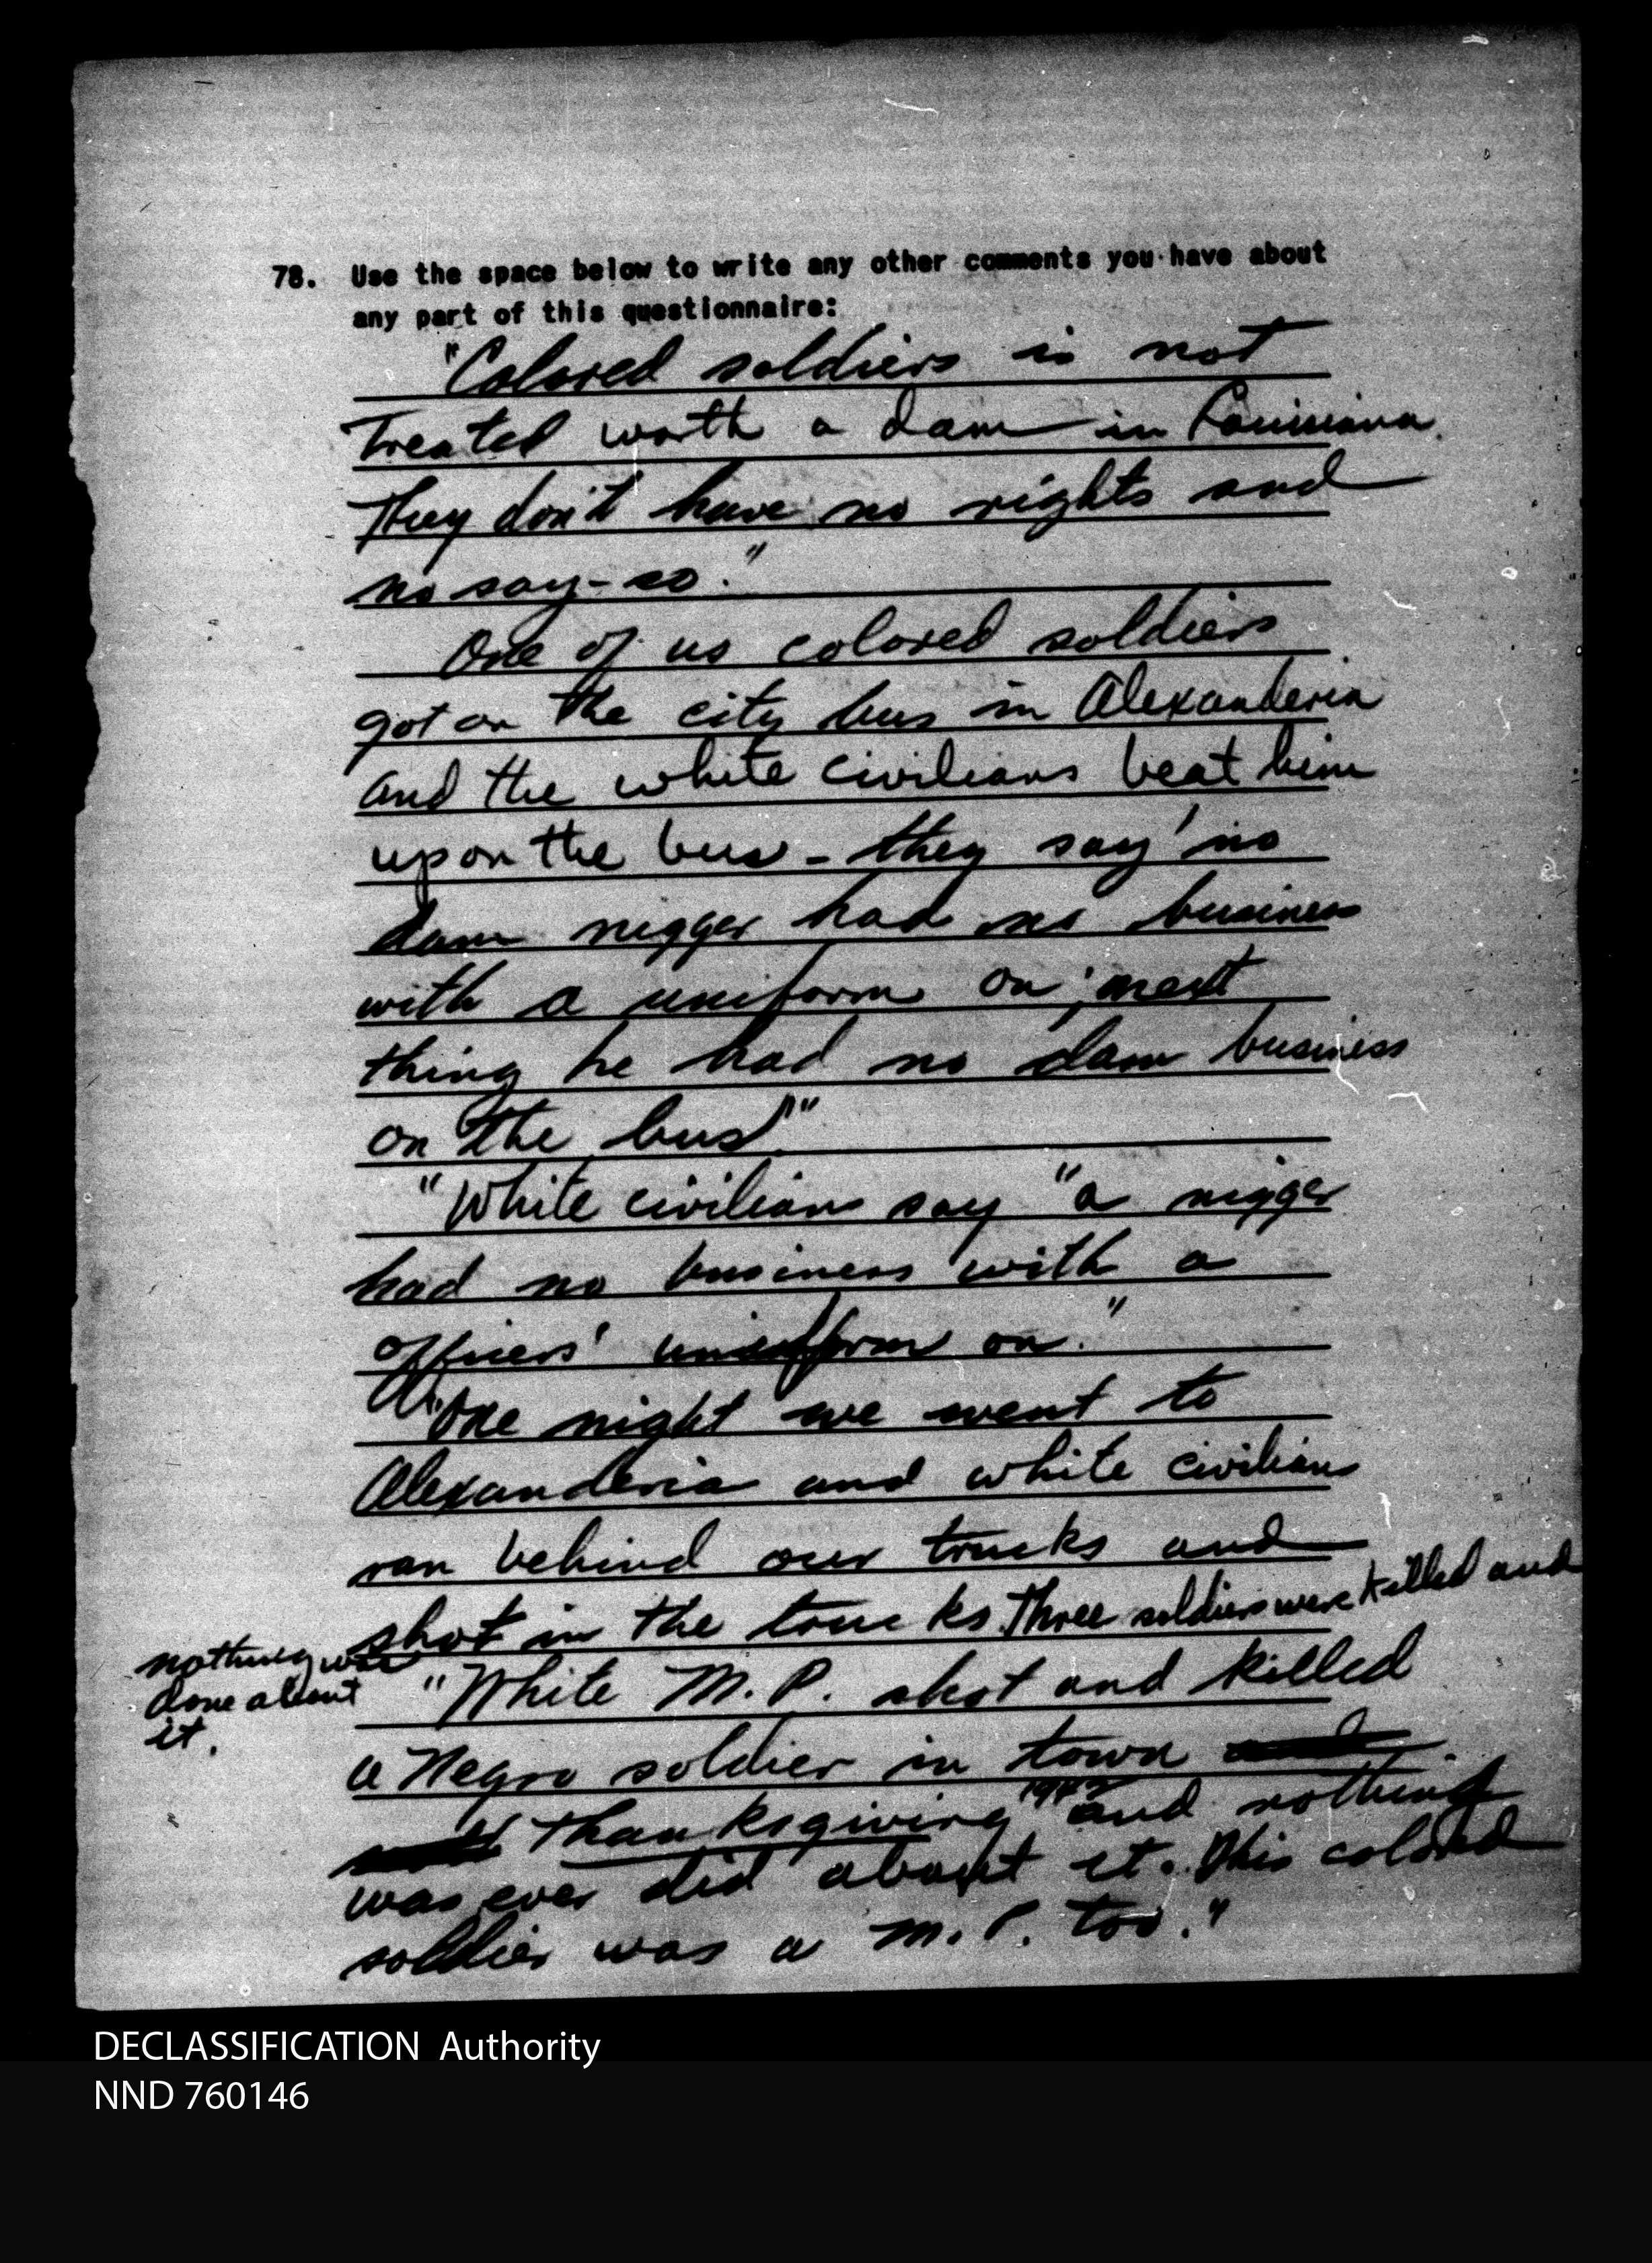 78. Use the space below to write any other comments you have about
any part of this questionnaire:
"Colored soldiers is not
Treated worth a dam in Louisiana.
They don't have no rights and
no say-so."
One of us colored soldiers
got on the city bus in Alexanderia
and the white civilians beat him
up on the bus - they say 'no
dam nigger had no business
with a uniform on; next
thing he had no dam business
on the bus'"
"White civilians say "a nigger
had no business with a
officers' uniform on."
"One night we went to
Alexanderia and white civilians
ran behind our trucks and
shot in the trucks. Three soldiers were killed and
nothing was
done about
it.
"White M.P. shot and killed
a Negro soldier in town
Thanksgiving and nothing
was ever did about it. This colored
soldier was a M.P. too."
DECLASSIFICATION Authority
NND 760146